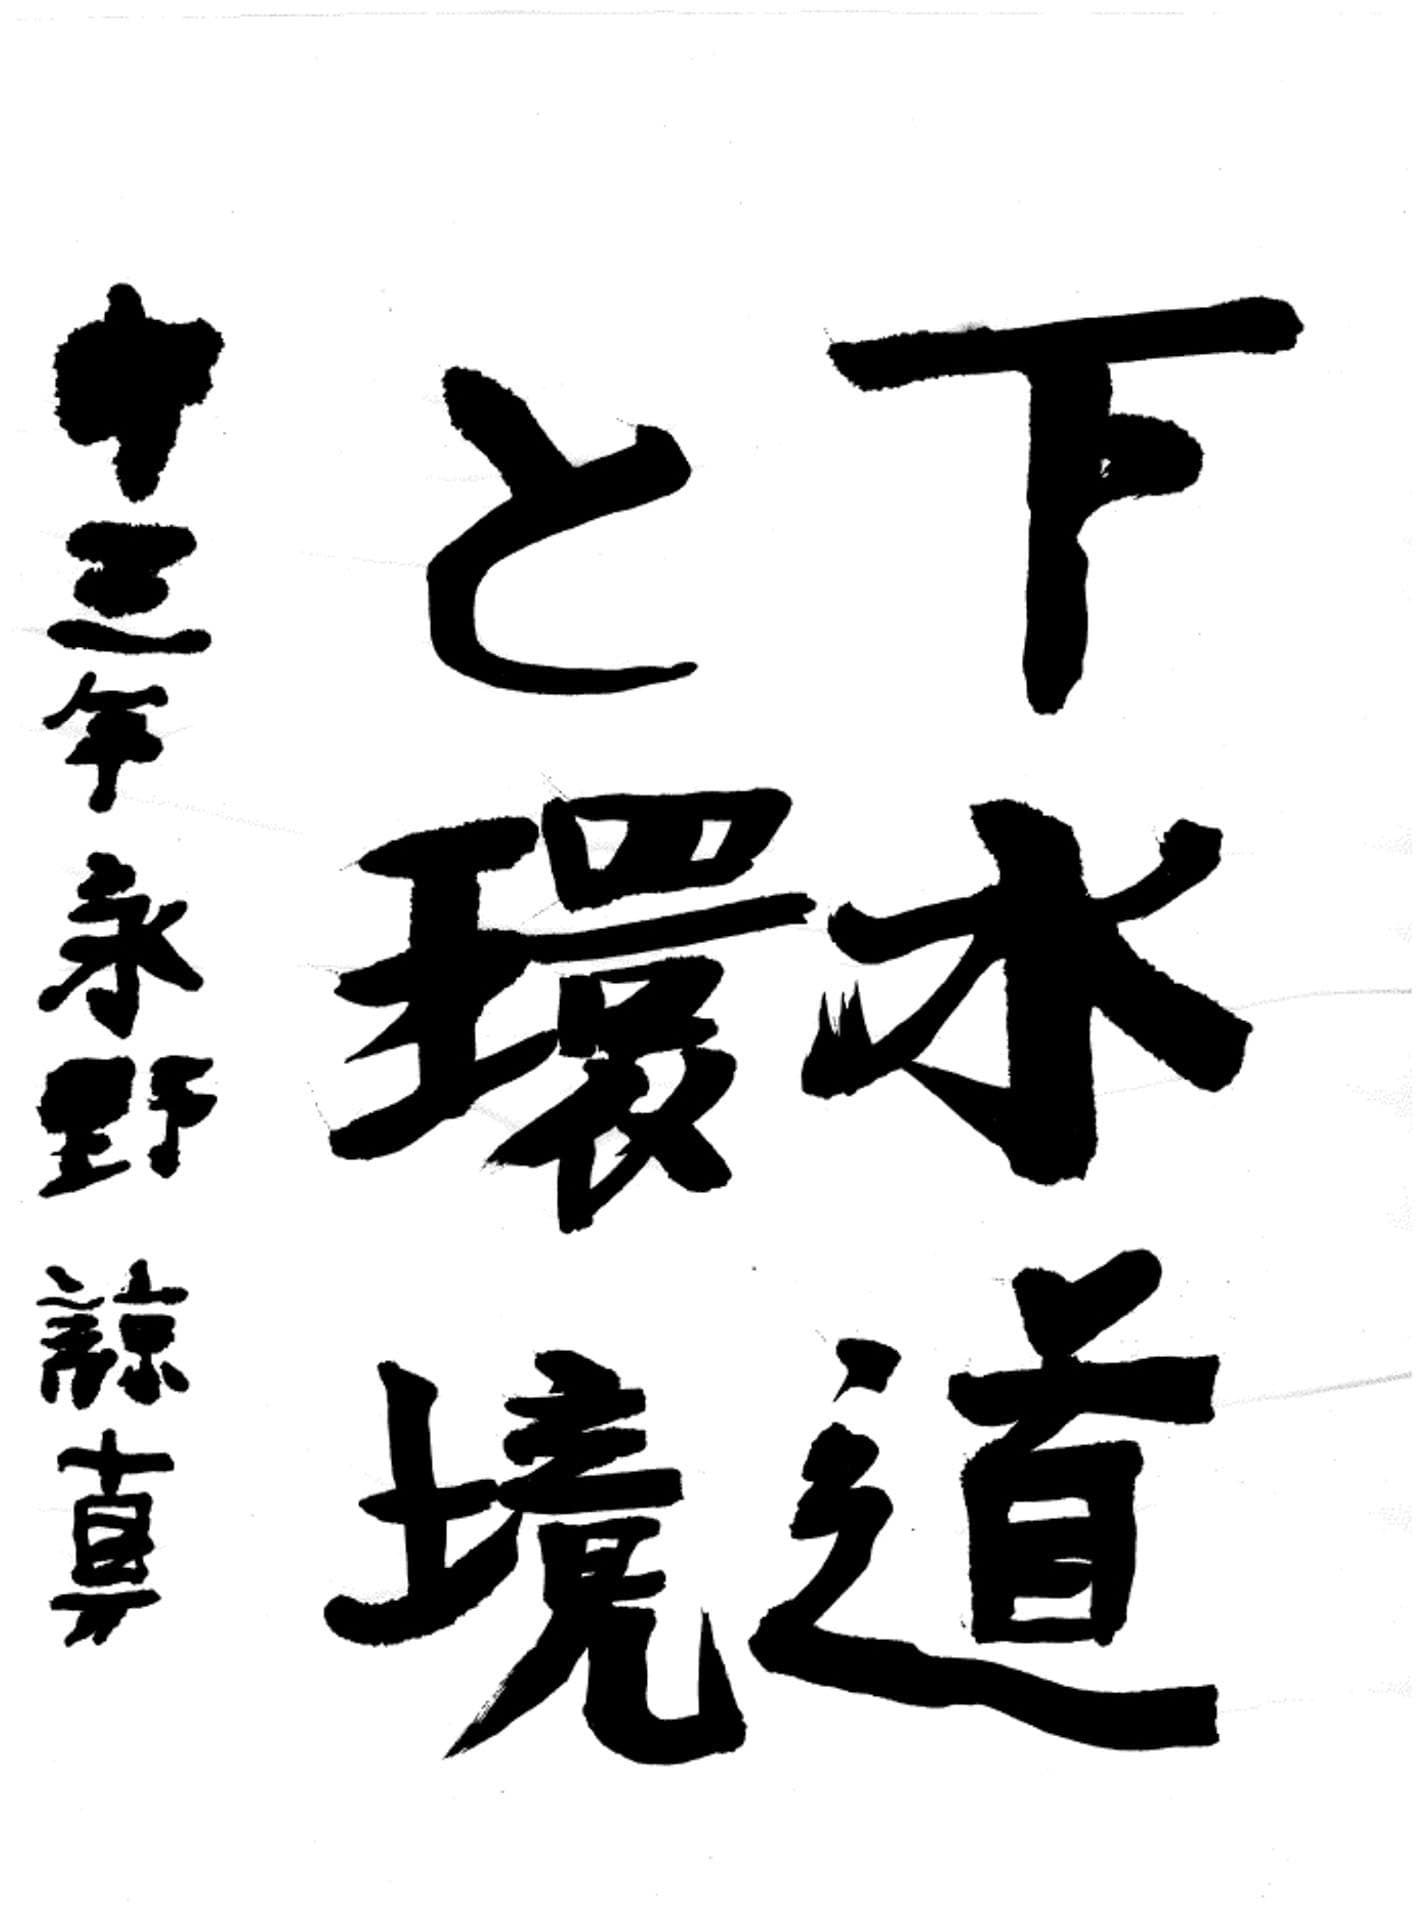 下水道
と環境
中三年 永野 諒真